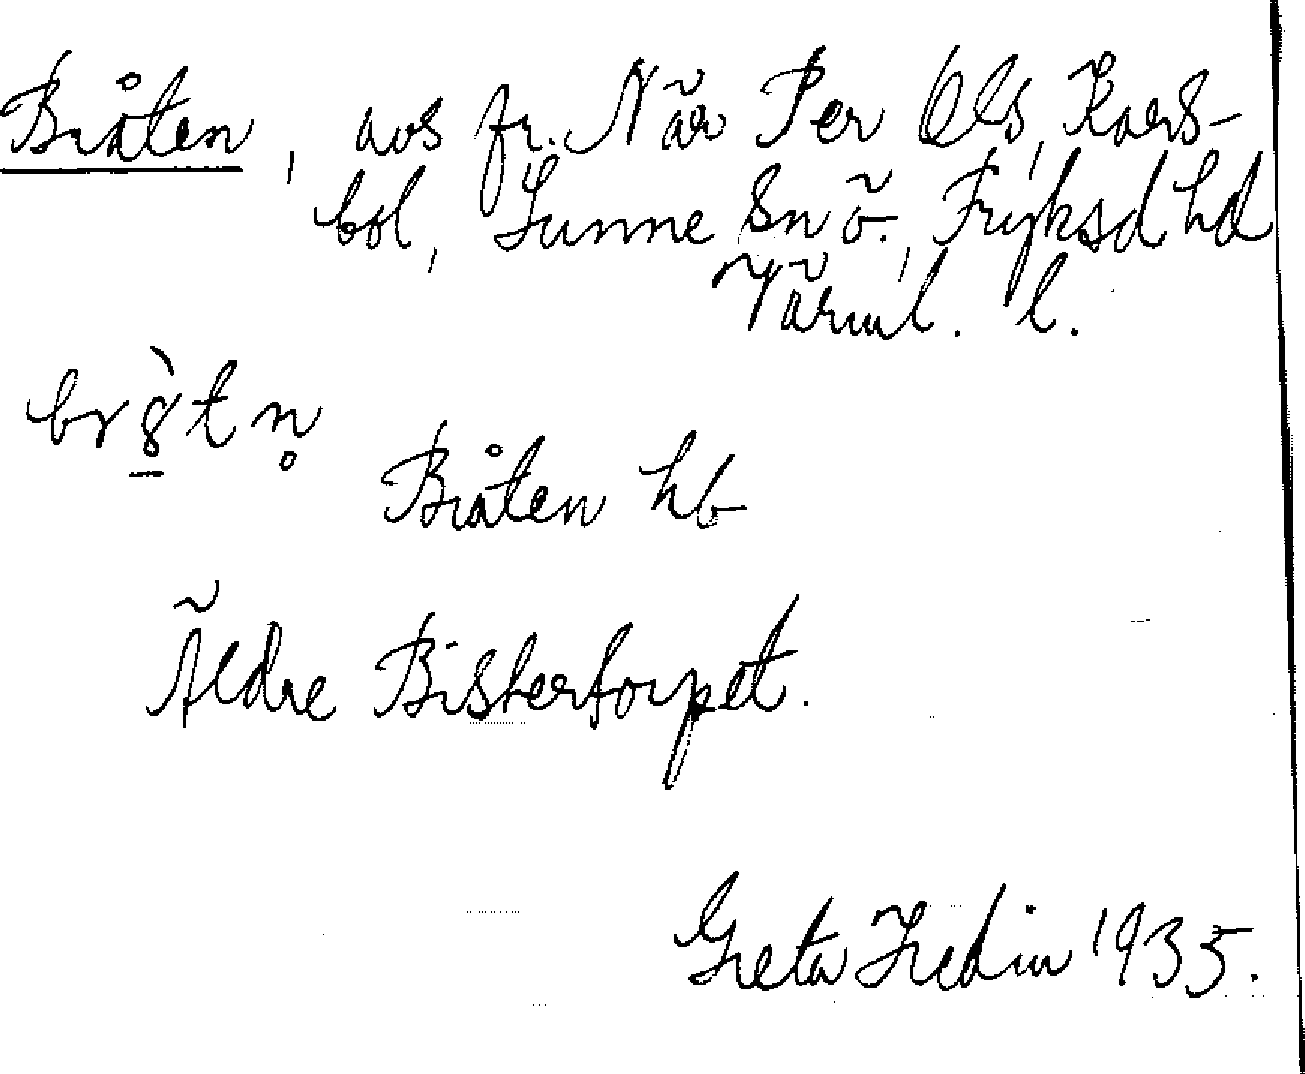 Bråten, avs fr. När Per Ols, Kars-
bol, Sunne sn ö., Fryksd hd
Värml. l.
br8̀tn̥
Bråten hb
Äldre Bistertorpet.
Greta Hedin 1935.